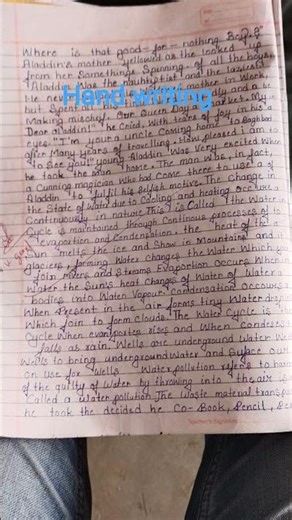 Where is that good-for-nothing Boy?
Aladdin's mother yellowed as she looked up
from her Somethings Spinning. of all the boys,
Aladdin Was the naughtiest and the laziest
He never in Work,
but Spent and a
Making mischief. Our Queen Day a Market. My
Dear aladdin!" he cried, With tears of joy in his
eyes. "I'm your a uncle Coming home to Baghbad
after Many years of travelling. How pleased i am to
to See you!" young Aladdin Was Very excited When
he took the man home. The man was, in fact,
a Cunning magician Who had Come there to use of
Aladdin to fulfil his Selfish motive. The Change in
the State of Water due to Cooling and heating occurs
Continuously in nature This is Called the Water
Cycle is maintained through Continous processes of
evaporation and Condensation, the heat of the
Sun melts the ice and Show in Mountains and
Glaciers, forming Water Changes the Water Which
Join rivers and Streams Evaporation Occurs When
Water the Sun's heat Changes of Water of Water
bodies into Water Vapour. Condensation Occours
When Present in the air forms tiny Water drop
Which join to form clouds. The Water Cycle is
Cycle When evaporates rises and When Condenses
falls as rain. Wells are underground Water
Wells to bring underground Water and
on Use for Wells Water pollution refers to
of the quility of Water by throwing into the air is
Called a Water pollution The Waste material
he took the decided he Co-Book, Pencil,
Hand writing
Teacher's Signature